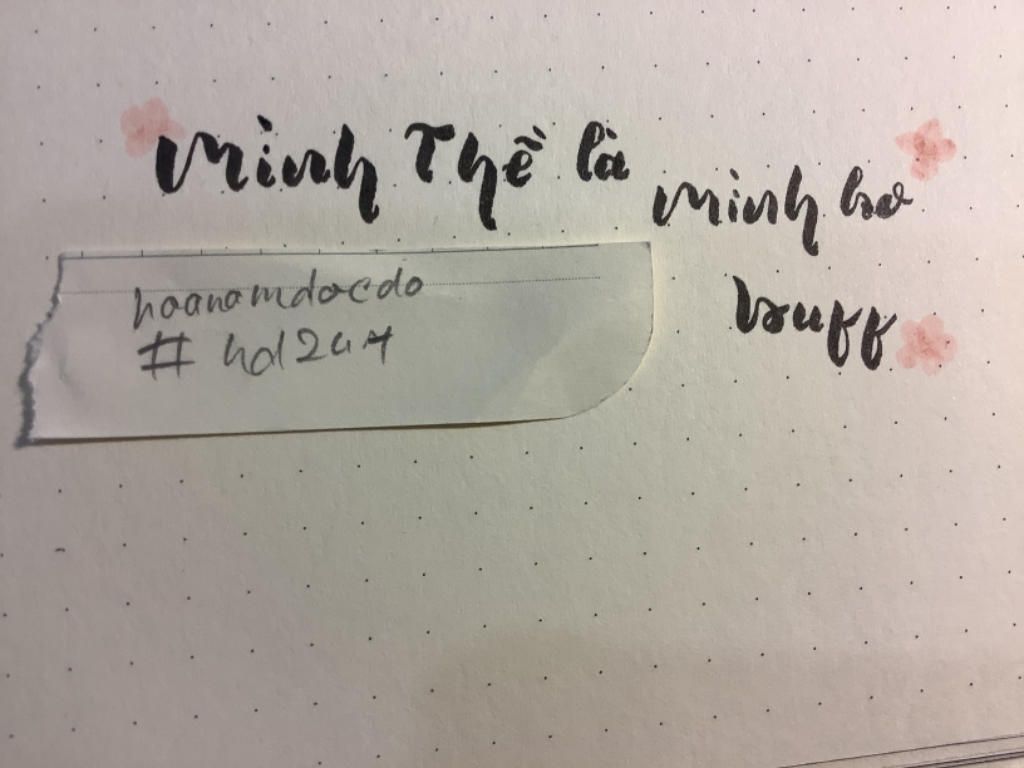 Mình Thề là
mình bơ
buff
hoanamdocdo
# hd247